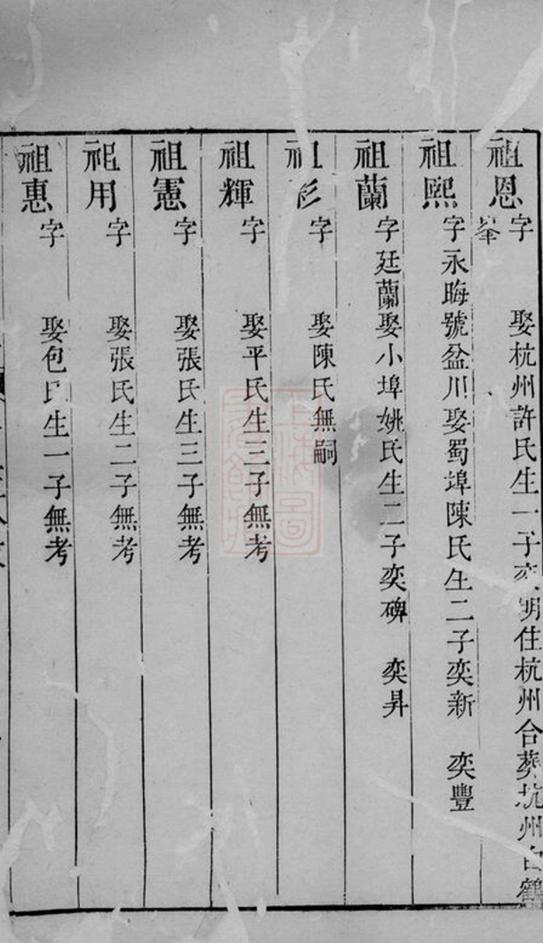 祖恩 字 娶杭州許氏生一子奕明住杭州合葬杭州白鶴
峯
祖熙 字永晦號盆川娶蜀埠陳氏生二子奕新 奕豐
祖蘭 字廷蘭娶小埠姚氏生二子奕碑 奕昇
祖彭 字 娶陳氏無嗣
祖輝 字 娶平氏生三子無考
祖憲 字 娶張氏生三子無考
祖用 字 娶張氏生二子無考
祖惠 字 娶包氏生一子無考